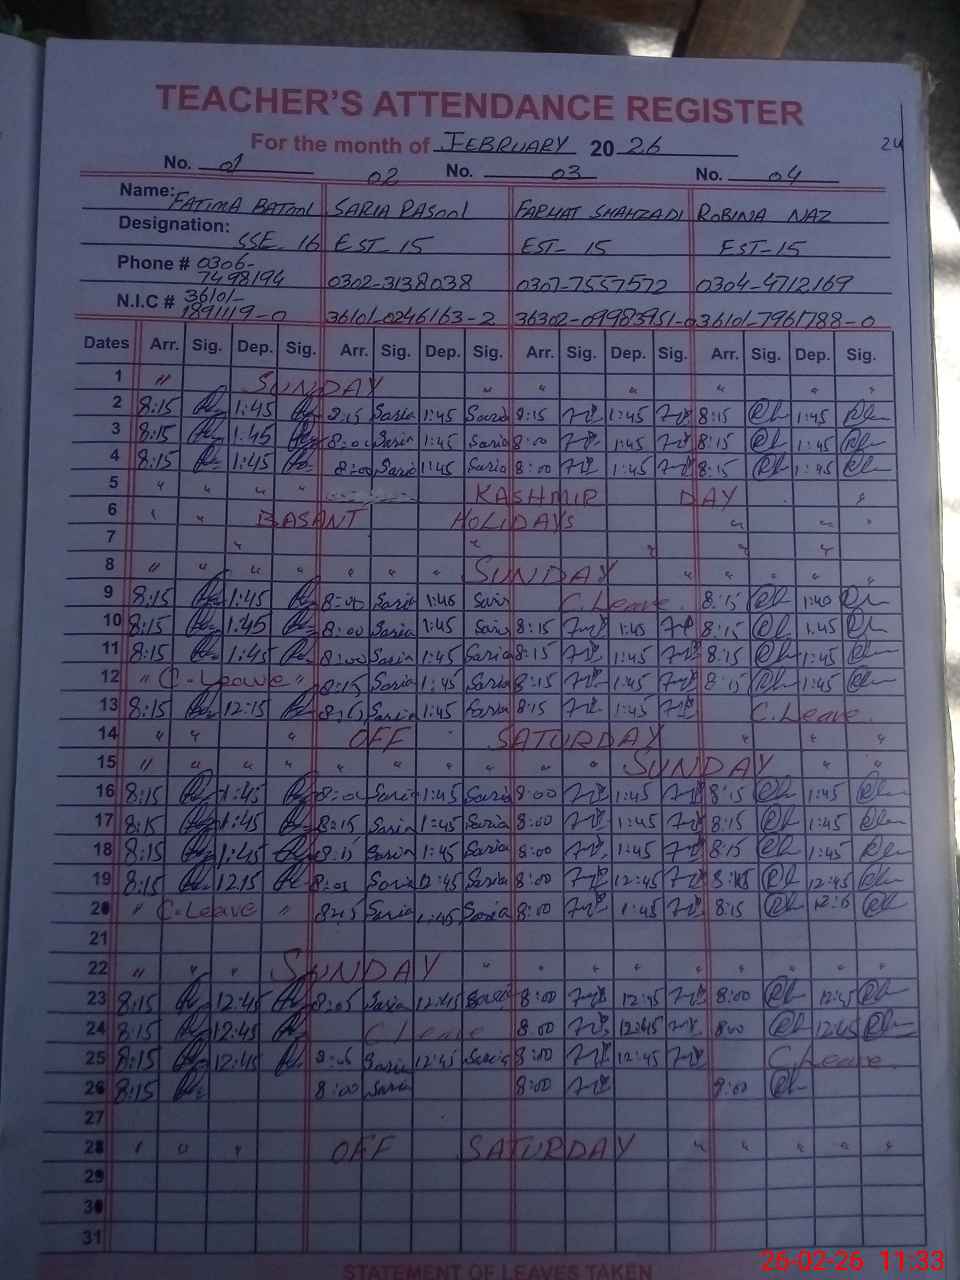 TEACHER'S ATTENDANCE REGISTER
For the month of FEBRUARY 20 26
24
No. 01 02 No. 03 No. 04
Name: FATIMA BATOOL SARIA RASOOL FARHAT SHAHZADI ROBINA NAZ
Designation: SSE-16 EST-15 EST-15 EST-15
Phone # 0306-7498194 0302-3138038 0307-7557572 0304-4712169
N.I.C # 36101-1891119-0 36101-0246163-2 36302-09983951-0 36101-7961788-0
Dates Arr. Sig. Dep. Sig. Arr. Sig. Dep. Sig. Arr. Sig. Dep. Sig. Arr. Sig. Dep. Sig.
1 " SUNDAY " " " " " "
2 8:15 1:45 8:15 Saria 1:45 Saria 8:15 1:45 8:15 1:45
3 8:15 1:45 8:00 Saria 1:45 Saria 8:00 1:45 8:15 1:45
4 8:15 1:45 8:00 Saria 1:45 Saria 8:00 1:45 8:15 1:45
5 " " " " KASHMIR DAY "
6 " " BASANT HOLIDAYS " " "
7 " " " " "
8 " " " " " " " SUNDAY " " " " "
9 8:15 1:45 8:00 Saria 1:45 Saria C.Leave 8:15 1:40
10 8:15 1:45 8:00 Saria 1:45 Saria 8:15 1:45 8:15 1:45
11 8:15 1:45 8:00 Saria 1:45 Saria 8:15 1:45 8:15 1:45
12 " C.Leave " 8:15 Saria 1:45 Saria 8:15 1:45 8:15 1:45
13 8:15 12:15 Saria 1:45 Saria 8:15 1:45 C.Leave.
14 " " " OFF SATURDAY " " "
15 " " " " " " " " " " SUNDAY " "
16 8:15 1:45 Saria 1:45 Saria 8:00 1:45 8:15 1:45
17 8:15 1:45 8:15 Saria 1:45 Saria 8:00 1:45 8:15 1:45
18 8:15 1:45 8:15 Saria 1:45 Saria 8:00 1:45 8:15 1:45
19 8:15 12:15 Saria 12:45 Saria 8:00 12:45 12:45
20 " C.Leave " Saria 1:45 Saria 8:00 1:45 8:15
21
22 " " " SUNDAY " " " " " " " "
23 8:15 12:45 8:05 Saria 12:45 Saria 8:00 12:45 8:00 12:45
24 8:15 12:45 C Leave 8:00 12:45 8:00 12:45
25 8:15 12:45 8:05 Saria 12:45 Saria 8:00 12:45 C.Leave.
26 8:15 8:00 Saria 8:00 8:00
27
28 " " " OFF SATURDAY " " " " "
29
30
31
STATEMENT OF LEAVES TAKEN
26-02-26 11:33